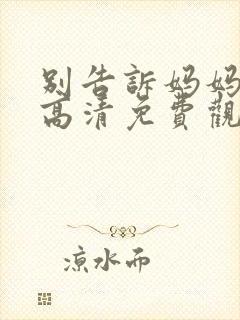 別告訴妈妈
高清免費觀
凉水而